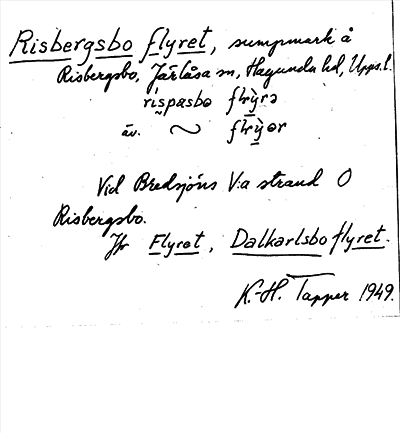 Risbergsbo flyret, sumpmark å
Risbergsbo, Järlåsa sn, Hagunda hd, Upps. l.
rispasbo flỳrə
äv. ~ flỳər
Vid Bredsjöns V:a strand O
Risbergsbo.
Jfr Flyret, Dalkarlsbo flyret.
K.-H. Tapper 1949.